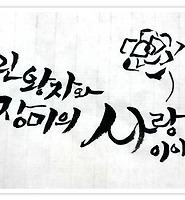 린왕자와
장미의 사랑
이야